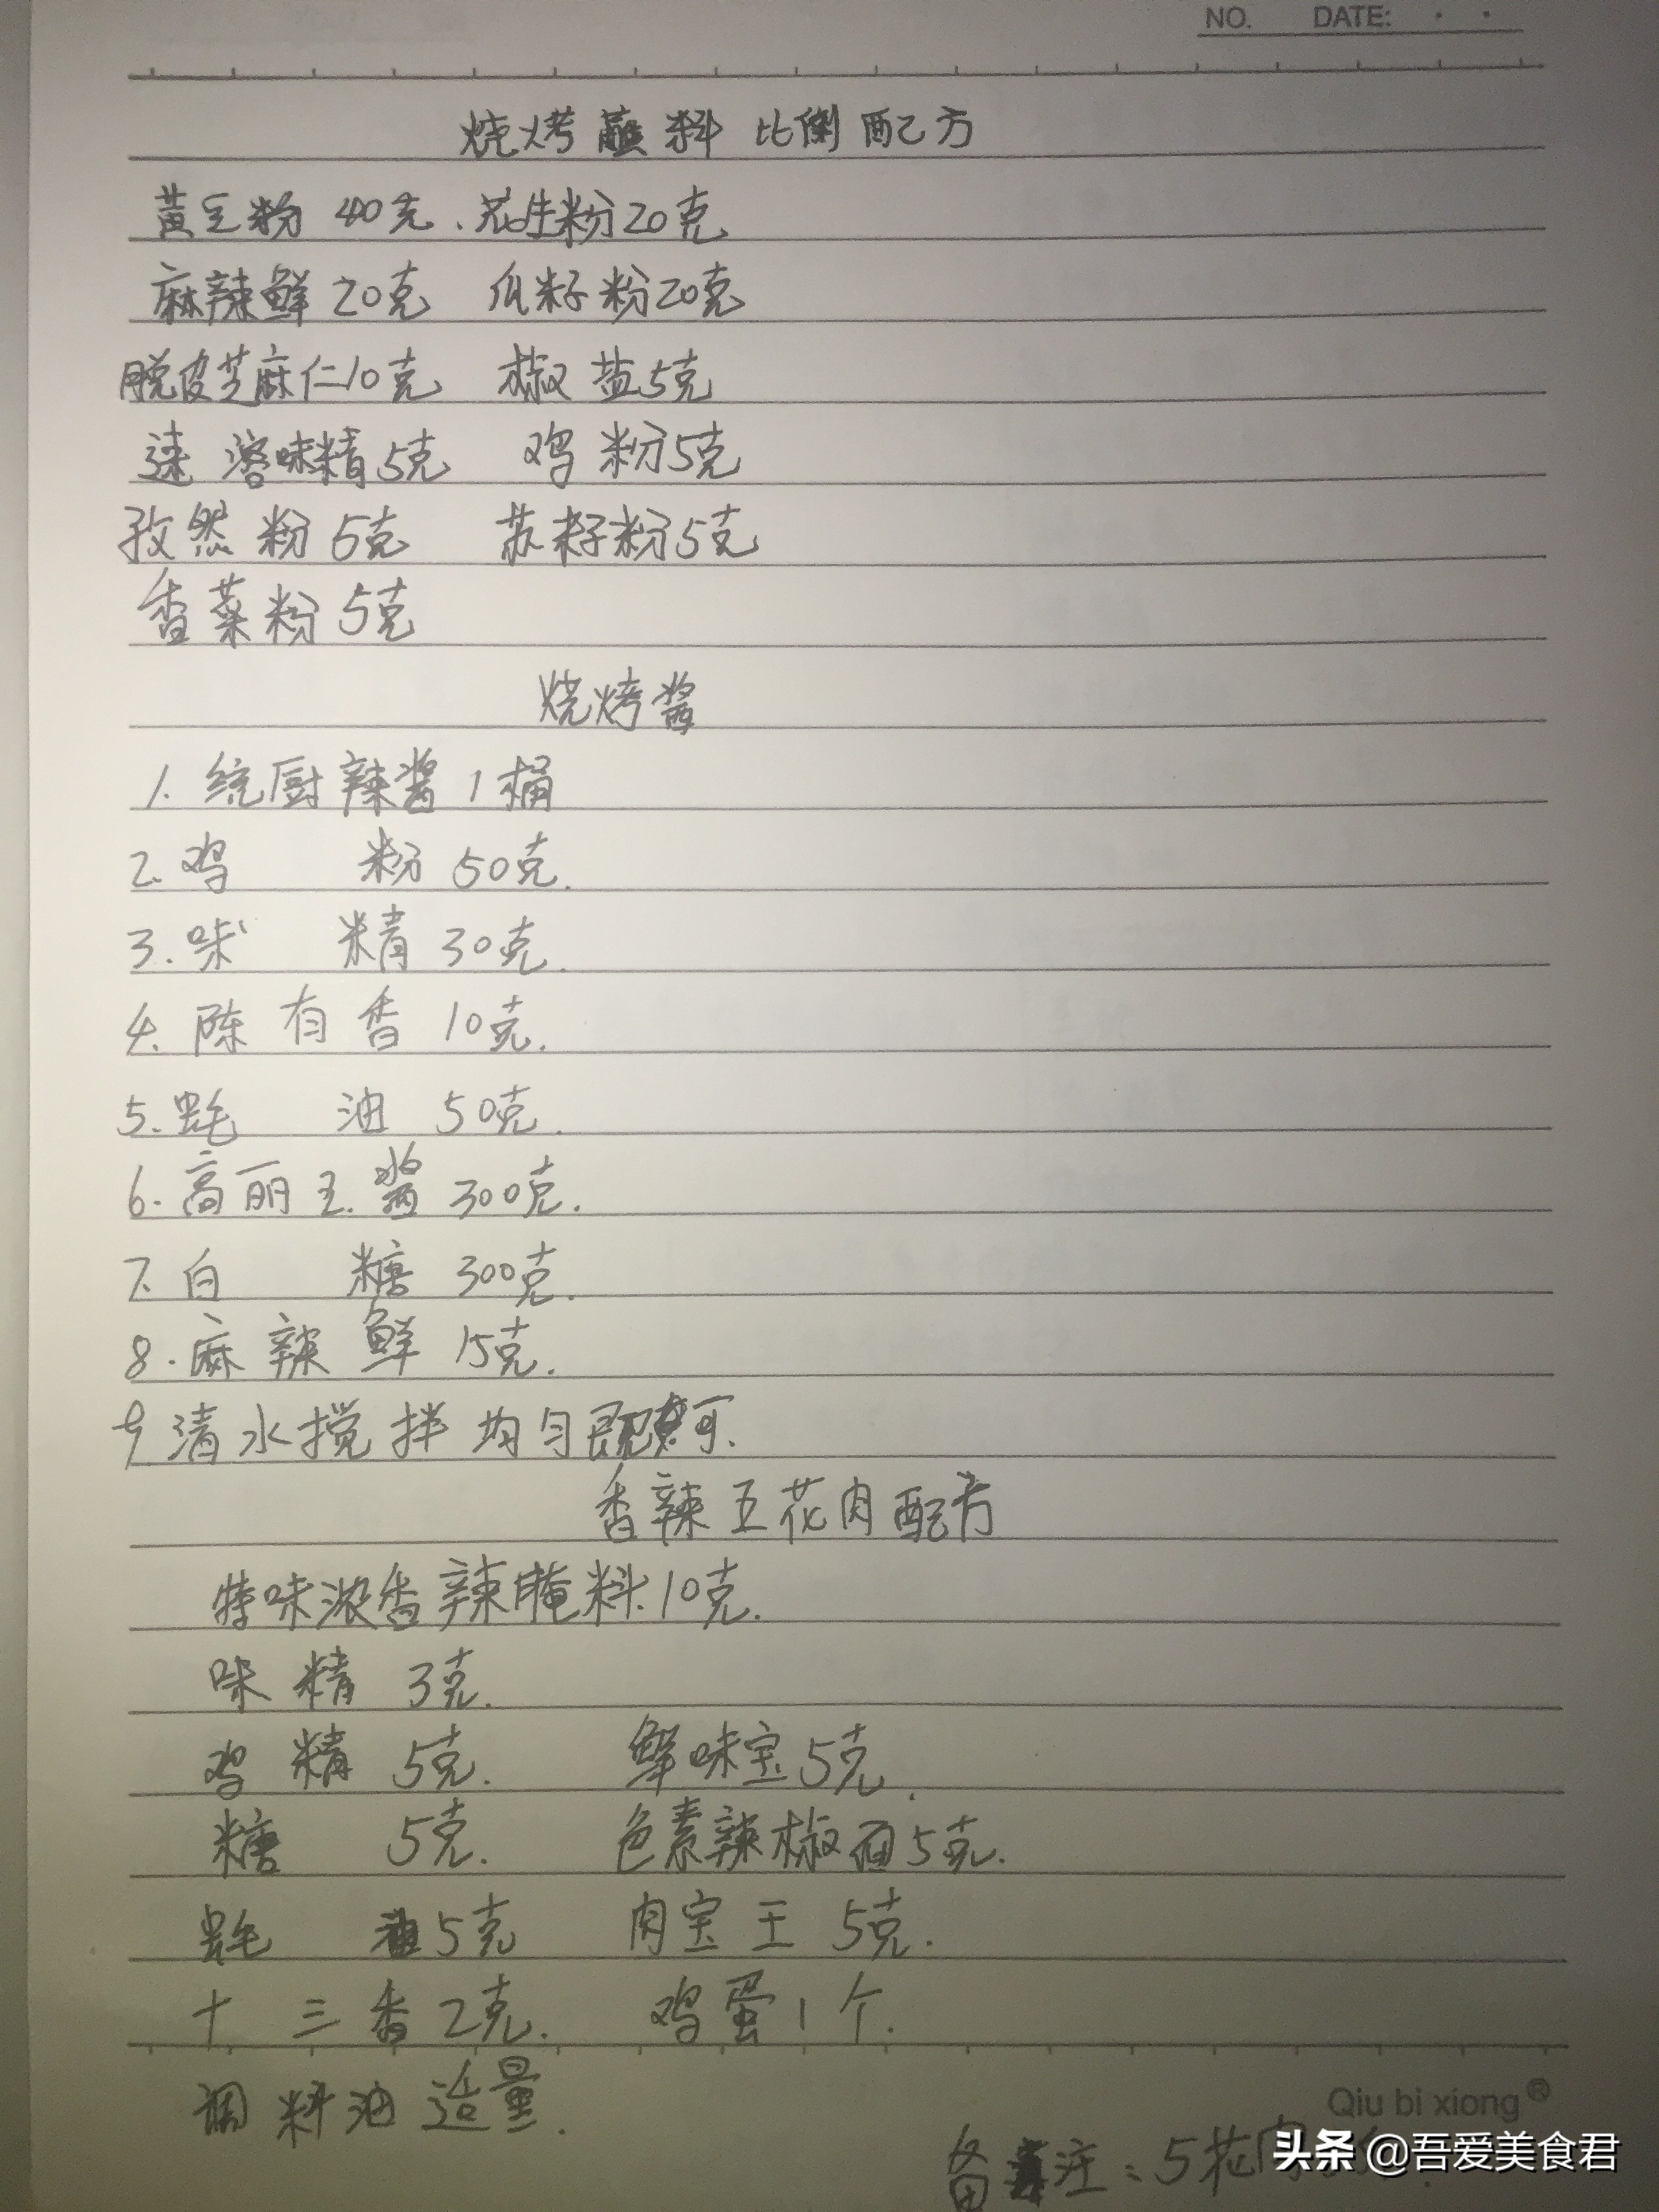 NO. DATE:
烧烤蘸料 比例配方
黄豆粉 40克、花生粉20克
麻辣鲜 20克 瓜籽粉20克
脱皮芝麻仁10克 椒盐5克
速溶味精5克 鸡粉5克
孜然粉 5克 苏籽粉5克
香菜粉 5克
烧烤酱
1. 统厨辣酱 1桶
2. 鸡 粉 50克.
3. 味 精 30克.
4. 陈有香 10克.
5. 蚝 油 50克.
6. 高丽王酱 300克.
7. 白 糖 300克.
8. 麻辣鲜 15克.
9 清水搅拌均匀即可.
香辣五花肉配方
特味浓香辣腌料10克.
味精 3克.
鸡精 5克. 鲜味宝5克.
糖 5克. 色素辣椒面5克.
蚝 油5克 肉宝王 5克.
十三香2克. 鸡蛋1个.
调料油适量.
Qiu bi xiong®
备注：5花肉
头条 @吾爱美食君